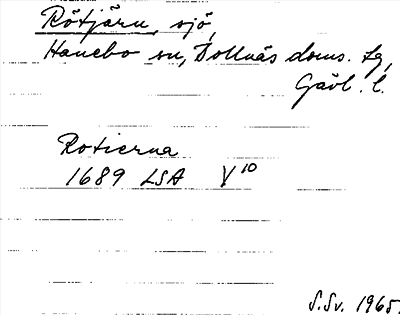 Rötjärn, sjö,
Hanebo sn, Bollnäs doms. lg,
Gävl. l.
Rotierna
1689 LSA V10
S.Sv. 1965.